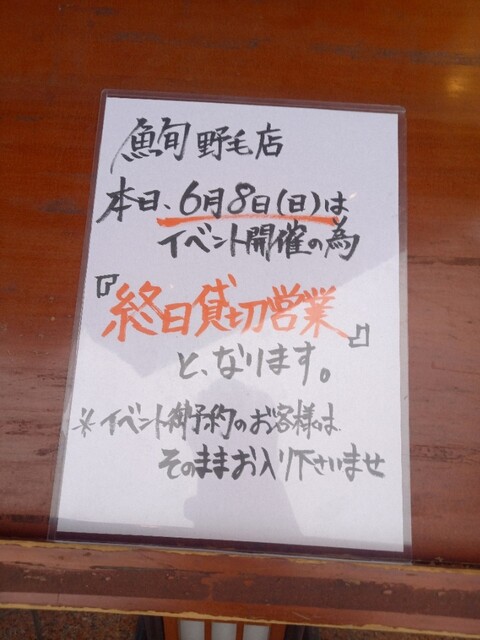 鮨旬 野毛店
本日、6月8日(日)は
イベント開催の為
『終日貸切営業』
と、なります。
※イベント御予約のお客様は
そのままお入り下さいませ